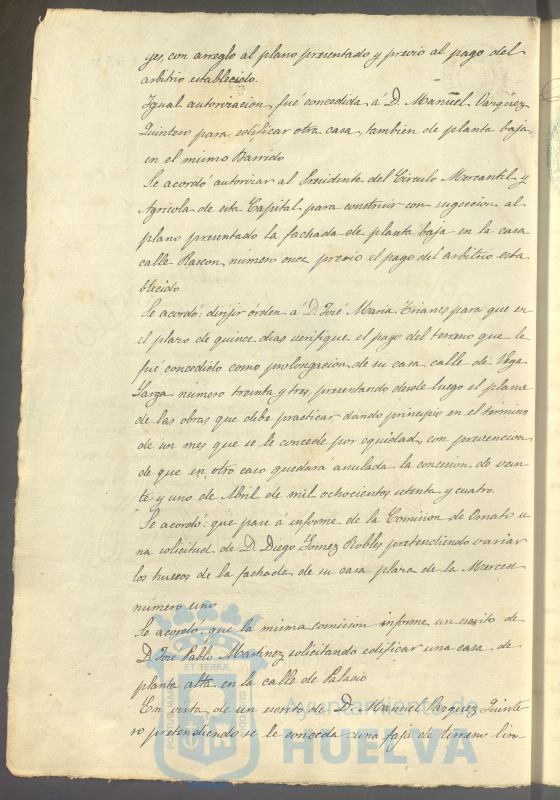 yes, con arreglo al plano presentado y previo al pago del
arbitrio establecido.
Igual autorizacion fué concedida á D. Manuel Vazquez
Quintero para edificar otra casa, tambien de planta baja
en el mismo Barrido
Se acordó autorizar al Presidente del Círculo Mercantil y
Agricola de esta Capital para construir con sugeccion al
plano presentado la fachada de planta baja en la casa
calle Rascon, numero once, previo el pago del arbitrio esta
blecido
Se acordó: dirijir órden á D. José Maria Trianes para que en
el plazo de quince dias verifique el pago del terreno que le
fué concedido como prolongacion de su casa calle de Vega
Larga número treinta y tres, presentando desde luego el plano
de las obras que debe practicar, dando principio en el término
de un mes que se le concede por equidad, con prevencion
de que en otro caso quedará anulada la concesion de vein
te y uno de Abril de mil ochocientos setenta y cuatro.
Se acordó: que pase á informe de la Comision de Ornato u
na solicitud de D. Diego Gomez Robles pretendiendo variar
los huecos de la fachada de su casa plaza de la Merced
número uno
Se acordó: que la misma comision informe un escrito de
D. José Pablo Martinez solicitando edificar una casa de
planta alta en la calle de Palacio
En vista de un escrito de D. Manuel Vazquez Quinte
ro pretendiendo se le conceda una faja de terreno lin-
ET TERRÆ
Ayuntamiento de
HUELVA